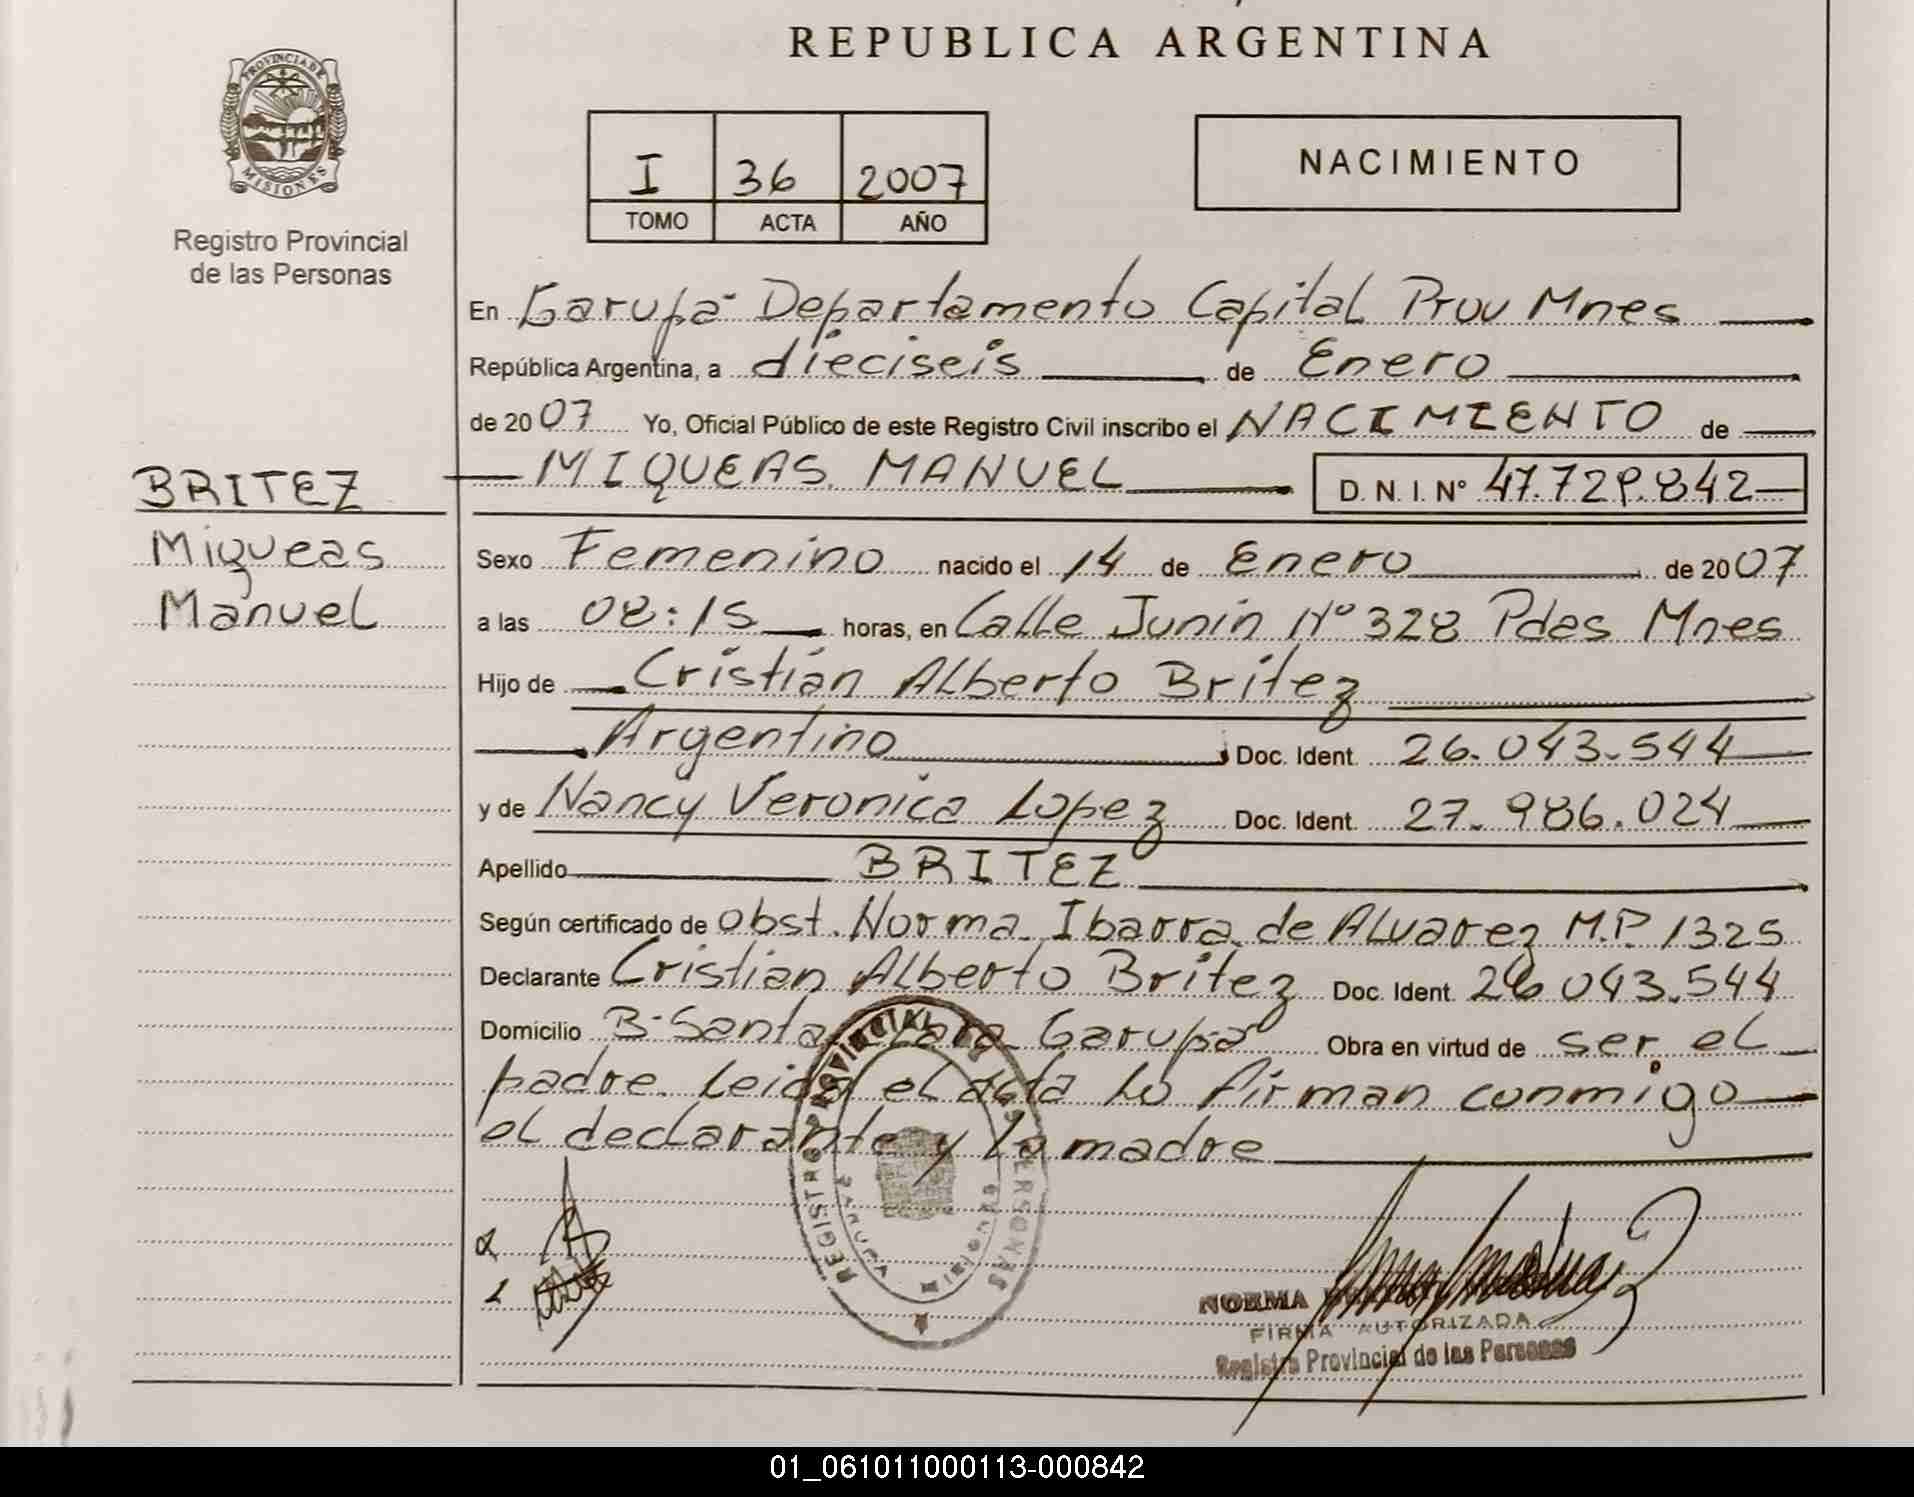 REPUBLICA ARGENTINA
PROVINCIA DE
MISIONES
Registro Provincial
de las Personas
I 36 2007
TOMO ACTA AÑO
NACIMIENTO
En Garupá Departamento Capital Prov Mnes
República Argentina, a dieciseis de Enero
de 2007 Yo, Oficial Público de este Registro Civil inscribo el NACIMIENTO de
MIQUEAS MANUEL D. N. I. Nº 47.729.842
BRITEZ
Miqueas
Manuel
Sexo Femenino nacido el 14 de Enero de 2007
a las 08:15 horas, en Calle Junin Nº 328 Pdas Mnes
Hijo de Cristian Alberto Britez
Argentino Doc. Ident. 26.043.544
y de Nancy Veronica Lopez Doc. Ident. 27.986.024
Apellido BRITEZ
Según certificado de Obst. Norma Ibarra de Alvarez M.P. 1325
Declarante Cristian Alberto Britez Doc. Ident. 26.043.544
Domicilio Bº Santa Garupá Obra en virtud de ser el
padre. Leida el acta lo firman conmigo
el declarante y la madre
REGISTRO PROVINCIAL DE LAS PERSONAS
GARUPA MISIONES
NORMA
FIRMA AUTORIZADA
Registro Provincial de las Personas
01_061011000113-000842